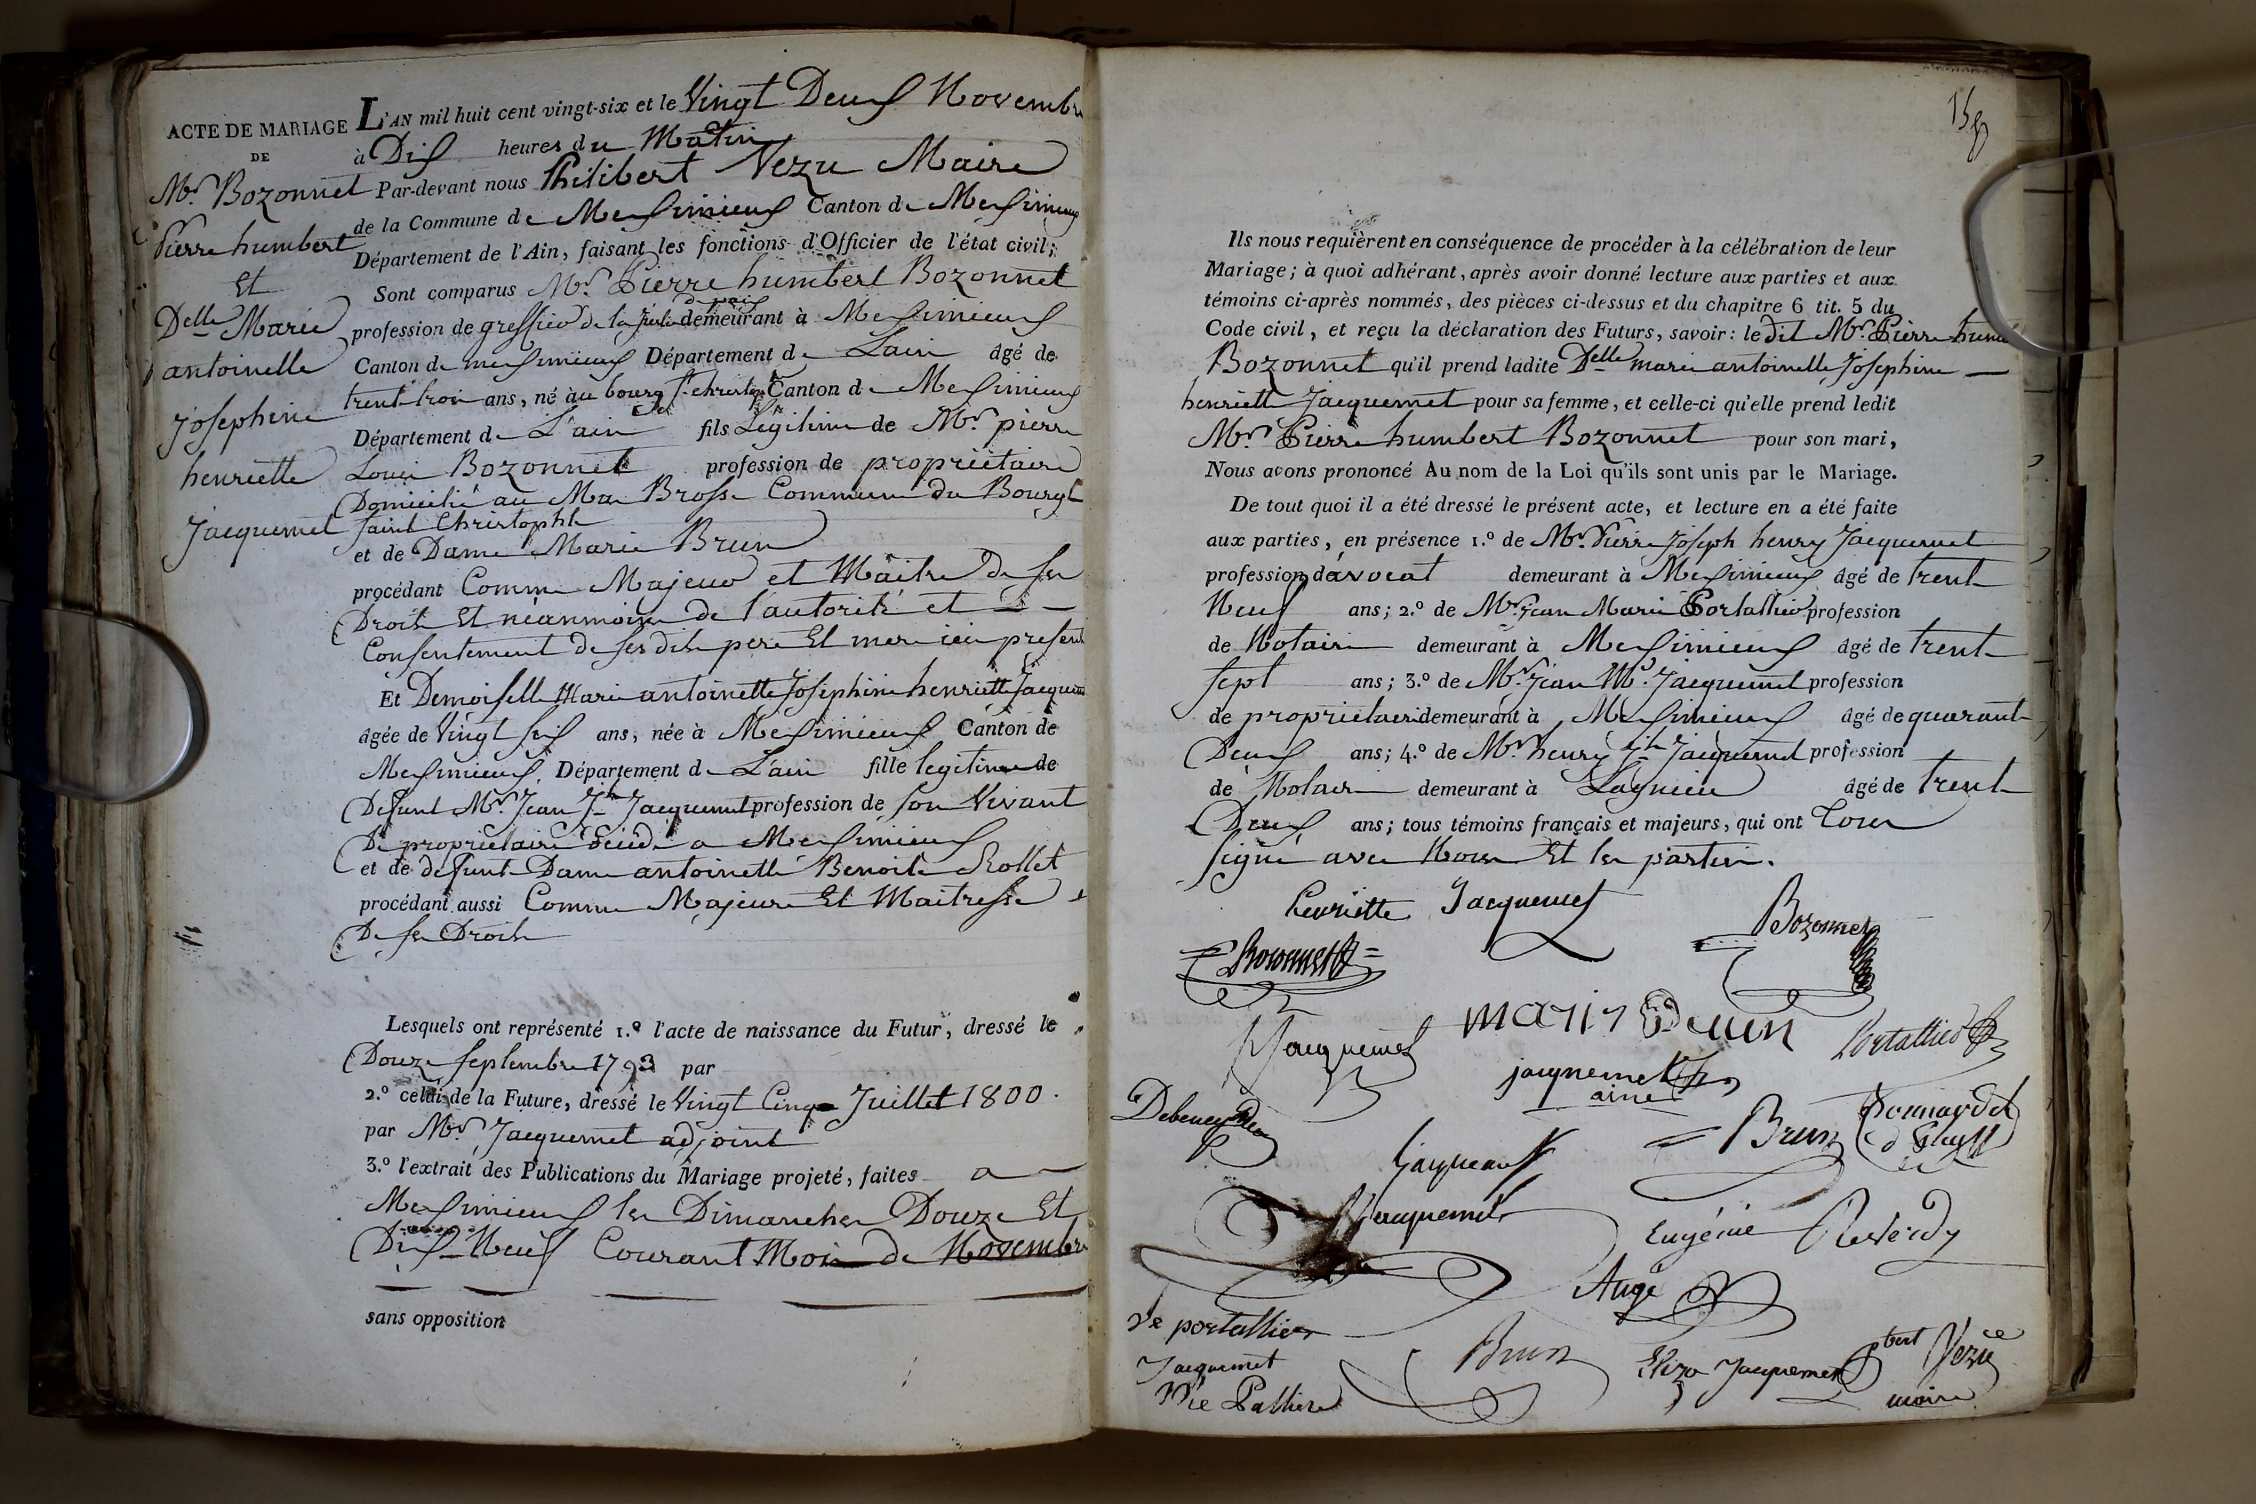 ACTE DE MARIAGE
DE
Mr. Bozonnet
Pierre humbert
Et
Delle Marie
antoinette
josephine
henriette
Jacquemet
L'AN mil huit cent vingt-six et le Vingt Deux Novembre
à Dix heures du Matin
Par-devant nous Philibert Vezu Maire
de la Commune de Meximieux Canton de Meximieux
Département de l'Ain, faisant les fonctions d'Officier de l'état civil;
Sont comparus Mr. Pierre humbert Bozonnet
profession de greffier de la justice de paix demeurant à Meximieux
Canton de meximieux Département de Lain âgé de
trente trois ans, né au bourg St. christophe Canton de Meximieux
Département de L'ain fils Légitime de Mr. pierre
Louis Bozonnet profession de propriétaire
Domicilié au Mas Brosse Commune du Bourg
saint Christophe
et de Dame Marie Brun
procédant Comme Majeur et Maitre de ses
Droits Et néanmoins de l'autorité et
Consentement de ses dits pere Et mere ici present
Et Demoiselle Marie antoinette Josephine henriette Jacquemet
âgée de Vingt six ans, née à Meximieux Canton de
Meximieux Département de L'ain fille legitime de
Defunt Mr. Jean Jh Jacquemet profession de son Vivant
De propriétaire décédé a Meximieux
et de defunte Dame antoinette Benoite Rollet
procédant aussi Comme Majeure Et Maitresse
De ses Droits
Lesquels ont représenté 1.º l'acte de naissance du Futur, dressé le
Douze septembre 1793 par
2.º celui de la Future, dressé le Vingt Cinq Juillet 1800.
par Mr. Jacquemet adjoint
3.º l'extrait des Publications du Mariage projeté, faites a
Meximieux les Dimanches Douze Et
Dix-Neuf Courant Mois de Novembre
sans opposition
Ils nous requièrent en conséquence de procéder à la célébration de leur
Mariage; à quoi adhérant, après avoir donné lecture aux parties et aux
témoins ci-après nommés, des pièces ci-dessus et du chapitre 6 tit. 5 du
Code civil, et reçu la déclaration des Futurs, savoir: le dit Mr. Pierre humbert
Bozonnet qu'il prend ladite Delle marie antoinette Josephine
henriette Jacquemet pour sa femme, et celle-ci qu'elle prend ledit
Mr. Pierre humbert Bozonnet pour son mari,
Nous avons prononcé Au nom de la Loi qu'ils sont unis par le Mariage.
De tout quoi il a été dressé le présent acte, et lecture en a été faite
aux parties, en présence 1.º de Mr. Pierre Joseph henry Jacquemet
profession d'avocat demeurant à Meximieux âgé de trente
Neuf ans; 2.º de Mr. jean Marie Portallier profession
de Notaire demeurant à Meximieux âgé de trente
sept ans; 3.º de Mr. Jean Me. Jacquemet profession
de propriétaire demeurant à Meximieux âgé de quarante
Deux ans; 4.º de Mr. henry Jh Jacquemet profession
de Notaire demeurant à Lagnieu âgé de trente
Deux ans; tous témoins français et majeurs, qui ont Tous
signé avec Nous Et les parties.
henriette Jacquemet
Bozonnet
Bozonnet
marie Brun
Jacquemet
Portallier
jacquemet
ainé
Brun
Jacquemet
Eugénie Reverdy
Augé
Ve portallier
Jacquemet
Brun
Eliza Jacquemet
Pbert Vezu
maire